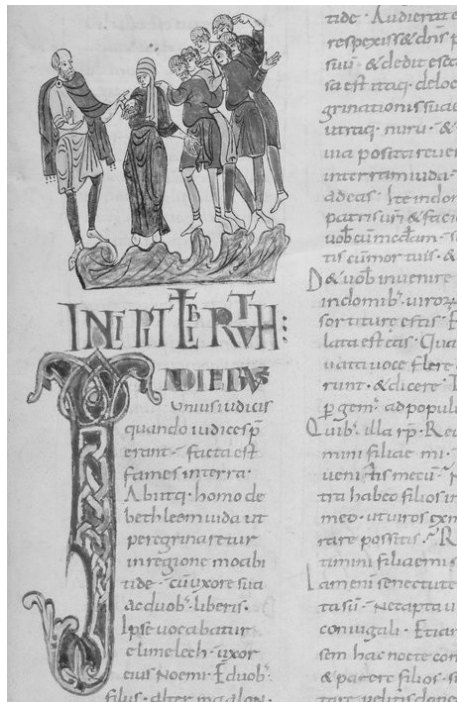 INCIPIT LIBER RUTH:
IN DIEBUS
Unius iudicis
quando iudices p̄
erant · facta est
fames in terra ·
Abiitq · homo de
bethleem iuda ut
peregrinaretur
in regione moabi
tide · cū uxore sua
ac duob · liberis ·
Ipse uocabatur
elimelech · uxor
eius Noemi · E duob ·
filiis · alter maalon ·
tide · Audierat e
respexisse dn̄s p
suū · & dedit esca
sa est itaq · de loc
grinationis suae
utraq · nuru · &
uia posita reuer
in terram iuda ·
ad eas · Ite in dom
patris uri & facia
uob cū mc̄dam ·
tis cū mortuis · &
D& uob inuenire
in domib · uiroꝝ
sortiture estis · E
lata est eas · Qua
uata uoce flere
runt · & dicere · T
ꝑgem · ad popul
Quib · illa rp̄ · Re
mini filiae mi ·
uenitis mecū ·
tra habeo filios in
meo · ut uiros ex m
rare possitis · R
timini filiae mi
iam enī senectute
ta sū · Nec apta u
coniugali · Etiam
sem hac nocte con
& parere filios · s
tare uelitis donec